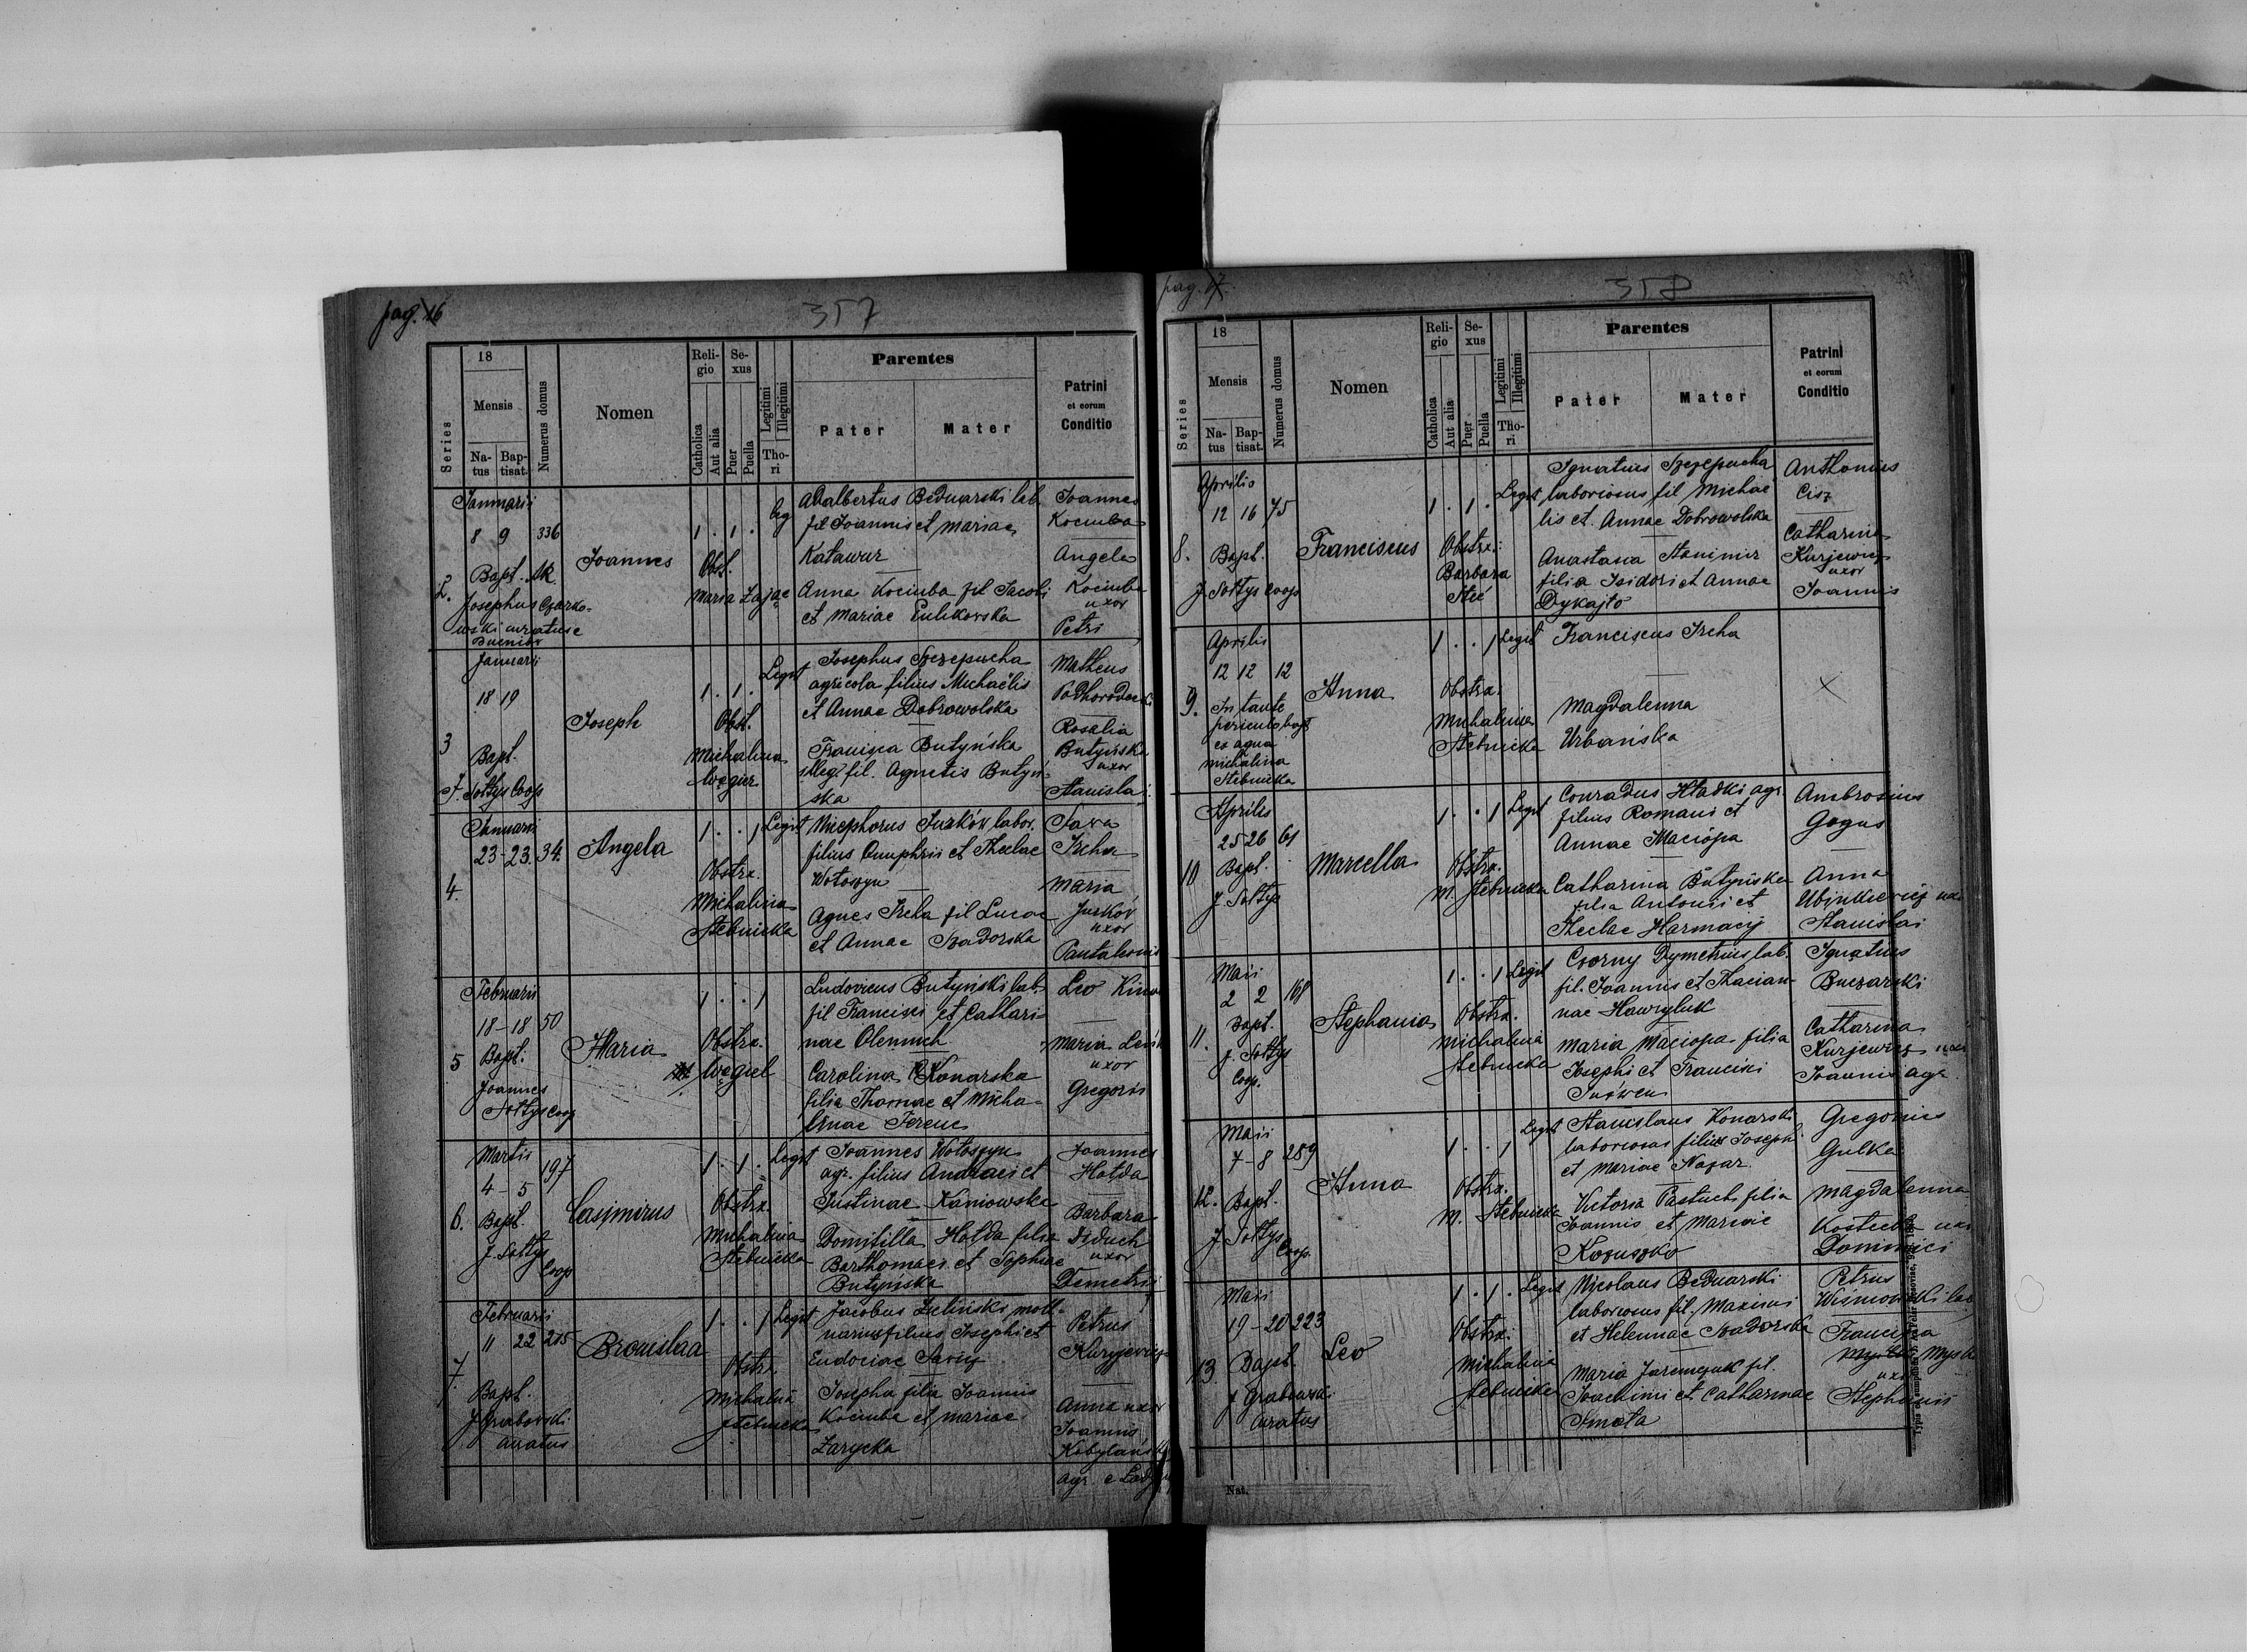 pag. 16
357
18
Mensis
Series
Na-
tus
Bap-
tisat.
Numerus domus
Nomen
Reli-
gio
Catholica
Aut alia
Se-
xus
Puer
Puella
Legitimi
Illegitimi
Tho-
ri
Parentes
Pater
Mater
Patrini
et eorum
Conditio
Januarii
8 9 336
2. Bapt.
Josephus Czarko-
wski curatus e
Joannes
1 . 1 . leg
Obst.
Maria Zając
Adalbertus Bednarski lab.
fil Joannis et Mariae
Katawur
Anna Kociuba fil Jacobi
et Mariae Culikovska
Joannes
Kociuba
Angela
Kociuba
uxor
Petri
Januarii
18 19
3
Bapt.
J. Sołtys Coop
Joseph
1 . 1 . Legit
Obst.
Michalina
Węgier
Josephus Szczepucha
agricola filius Michaëlis
et Annae Dobrowolska
Francisca Butyńska
illeg. fil. Agnetis Butyń-
ska
Matheus
Rosalia
Butyńska
uxor
Stanislai
Januarii
23-23. 34.
4.
Angela
1 . . 1 Legit
Obstrx.
Michalina
Stebnicka
Nicephorus Jurków labor.
filius Onuphrii et Theclae
Wołoszyn
Agnes Ircha fil Lucae
et Annae Szadorska
Sava
Ircha
Maria
Jurków
uxor
Pantaleonis
Februarii
18-18 50
5 Bapt.
Joannes
Sołtys Coop
Maria
1 . . 1
Obstrx.
Węgiel
Ludovicus Butyński lab.
fil Francisci et Cathari-
nae Olennich
Carolina Konarska
filia Thomae et Micha-
linae Ferenc
Leo
Maria
uxor
Gregorii
Martii
4-5 197
6. Bapt.
J. Sołtys
Coop
Casimirus
1 . 1 . Legit
Obstrx.
Michalina
Stebnicka
Joannes Wołoszyn
agr. filius Andraei et
Justinae Kaniowska
Domitilla Hołda filia
Barthomaei et Sophiae
Butyńska
Joannes
Hołda
Barbara
Diduch
uxor
Demetrii
Februarii
11 22 215
7.
Bapt.
J Grabowski
curatus
Bronislaa
1 . . 1 Legit
Obstx.
Michalina
Stebnicka
Jacobus Zieliński moli-
narius filius Josephi et
Eudociae
Josepha filia Joannis
Kociuba et Mariae
Zarycka
Petrus
Anna uxor
Joannis
agr. e
pag. 17.
358
18
Mensis
Series
Na-
tus
Bap-
tisat.
Numerus domus
Nomen
Reli-
gio
Catholica
Aut alia
Se-
xus
Puer
Puella
Legitimi
Illegitimi
Tho-
ri
Parentes
Pater
Mater
Patrini
et eorum
Conditio
Aprilis
12 16 75
8. Bapt.
J. Sołtys Coop
Franciscus
1 . 1 . Legit
Obstrx.
Barbara
Ignatius Szczepucha
laboriosus fil Michae
lis et Annae Dobrowolska
Anastasia Stanimir
filia Isidori et Annae
Dykajło
Anthonius
Cisz
Catharina
Kurjewicz
uxor
Joannis
Aprilis
12 12 12
9. Instante
periculo bapt
ex aqua
Michalina
Stebnicka
Anna
1 . . 1 Legit
Obstrx.
Michalina
Stebnicka
Franciscus Ircha
Magdalenna
Urbańska
Aprilis
25 26 61
10 Bapt.
J. Sołtys
Marcella
1 . . 1 Legit
Obstrx.
M. Stebnicka
Conradus Hładki agr.
filius Romani et
Annae Maciopa
Catharina Butyńska
filia Antonii et
Theclae Harmacij
Ambrosius
Gogus
Anna
Stanislai
Maii
2 2 168
11. Bapt.
J. Sołtys
Coop.
Stephania
1 . . 1 Legit
Obstrx.
Michalina
Stebnicka
Czorny Dymetrius lab.
fil. Joannis et Thacian-
nae Hawryluk
Maria Maciopa filia
Josephi et Francisci
Ignatius
Buczarski
Catharina
Kurjewicz
Joannis agr.
Maii
7-8 289
12. Bapt.
J Sołtys
Coop.
Anna
1 . . 1 Legit
Obstrx.
M. Stebnicka
Stanislaus Konarski
laboriosus filius Josephi
et Mariae Nazar
Victoria Pastuch filia
Joannis et Mariae
Kozuszko
Gregorius
Gulka
Magdalenna
Dominici
Maii
19-20 223
13 Bapt.
J Grabowski
curatus
Leo
1 . 1 . Legit
Obstrx.
Michalina
Stebnicka
Nicolaus Bednarski
laboriosus fil. Maximi
et Helennae Szadorska
Maria Jaremczuk fil.
Joachimi et Catharinae
Smota
Petrus
Wiśniowski lab
Francisca
uxor
Stephanii
Nat.